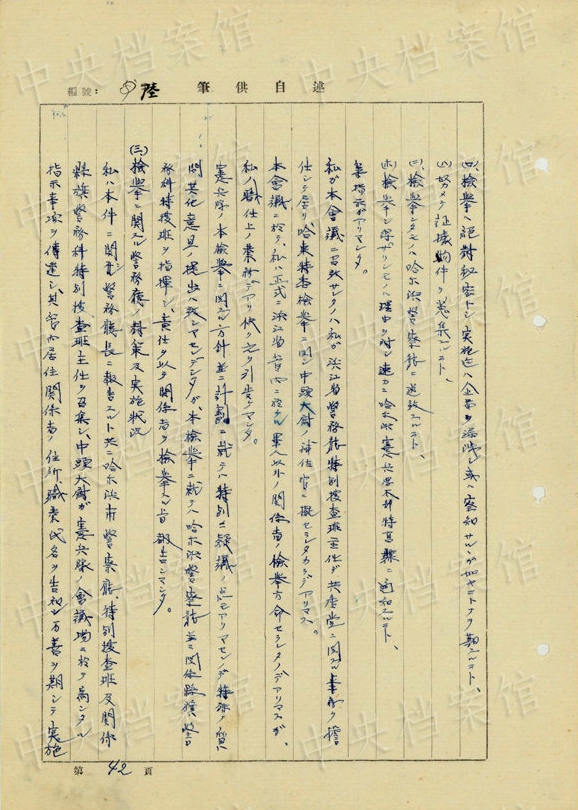 編號：
陸
筆供自述
(四)、檢挙ハ絶対秘密トシ実施迄ハ企図ヲ漏洩シ或ハ察知サルルガ如キコトナク期スルコト、
(五)努メテ証拠物件ヲ蒐集スルコト、
檢挙シタモノハ哈尔浜警察庁ニ送致スルコト、
檢挙シ得ザリシモノハ理由ヲ付シ速カニ哈尔浜憲兵隊本部特高課ニ通知スルコト、
等指示ガアリマシタ。
私ガ本會議ニ召致サレタノハ私ガ浜江省警務庁特別搜査班主任デ共産党ニ関スル事務ヲ擔
任シテ居リ哈東特各檢挙ニ関シ中頭大尉ノ補佐官ニ擬セラレタカラデアリマス。
本會議ニ於テ、私ハ正式ニ浜江省管内ニ於ケル軍人以外ノ関係者ノ檢挙方命セラレタノデアリマスガ、
私ノ職任上ノ業務デアリ快ク之ヲ引受ケマシタ。
憲兵隊ノ本檢挙ニ関スル方針並ニ計劃ニ就テハ特別ニ疑議ノ点モアリマセンノデ特殊ノ質
問其他意見ノ提出ハ致シマセンデシタガ、本檢挙ニ就テハ哈尔浜警察庁並ニ関係縣旗警
務科特搜班ヲ指揮シ、責任ヲ以テ関係者ヲ檢挙スル旨報告シマシタ。
(三)檢挙ニ関スル警務庁ノ対策及実施狀況
私ハ本件ニ関シ警務庁長ニ報告スルト共ニ哈尔浜市警察庁、特別搜査班及関係
縣旗警務科特別搜査班主任ヲ召集シ、中頭大尉ガ憲兵隊ノ會議場ニ於テ為シタル
指示事項ヲ傳達シ、其管内居住関係者ノ住所、職業氏名ヲ告知シ万善ヲ期シテ実施
第 42 頁
中央档案馆